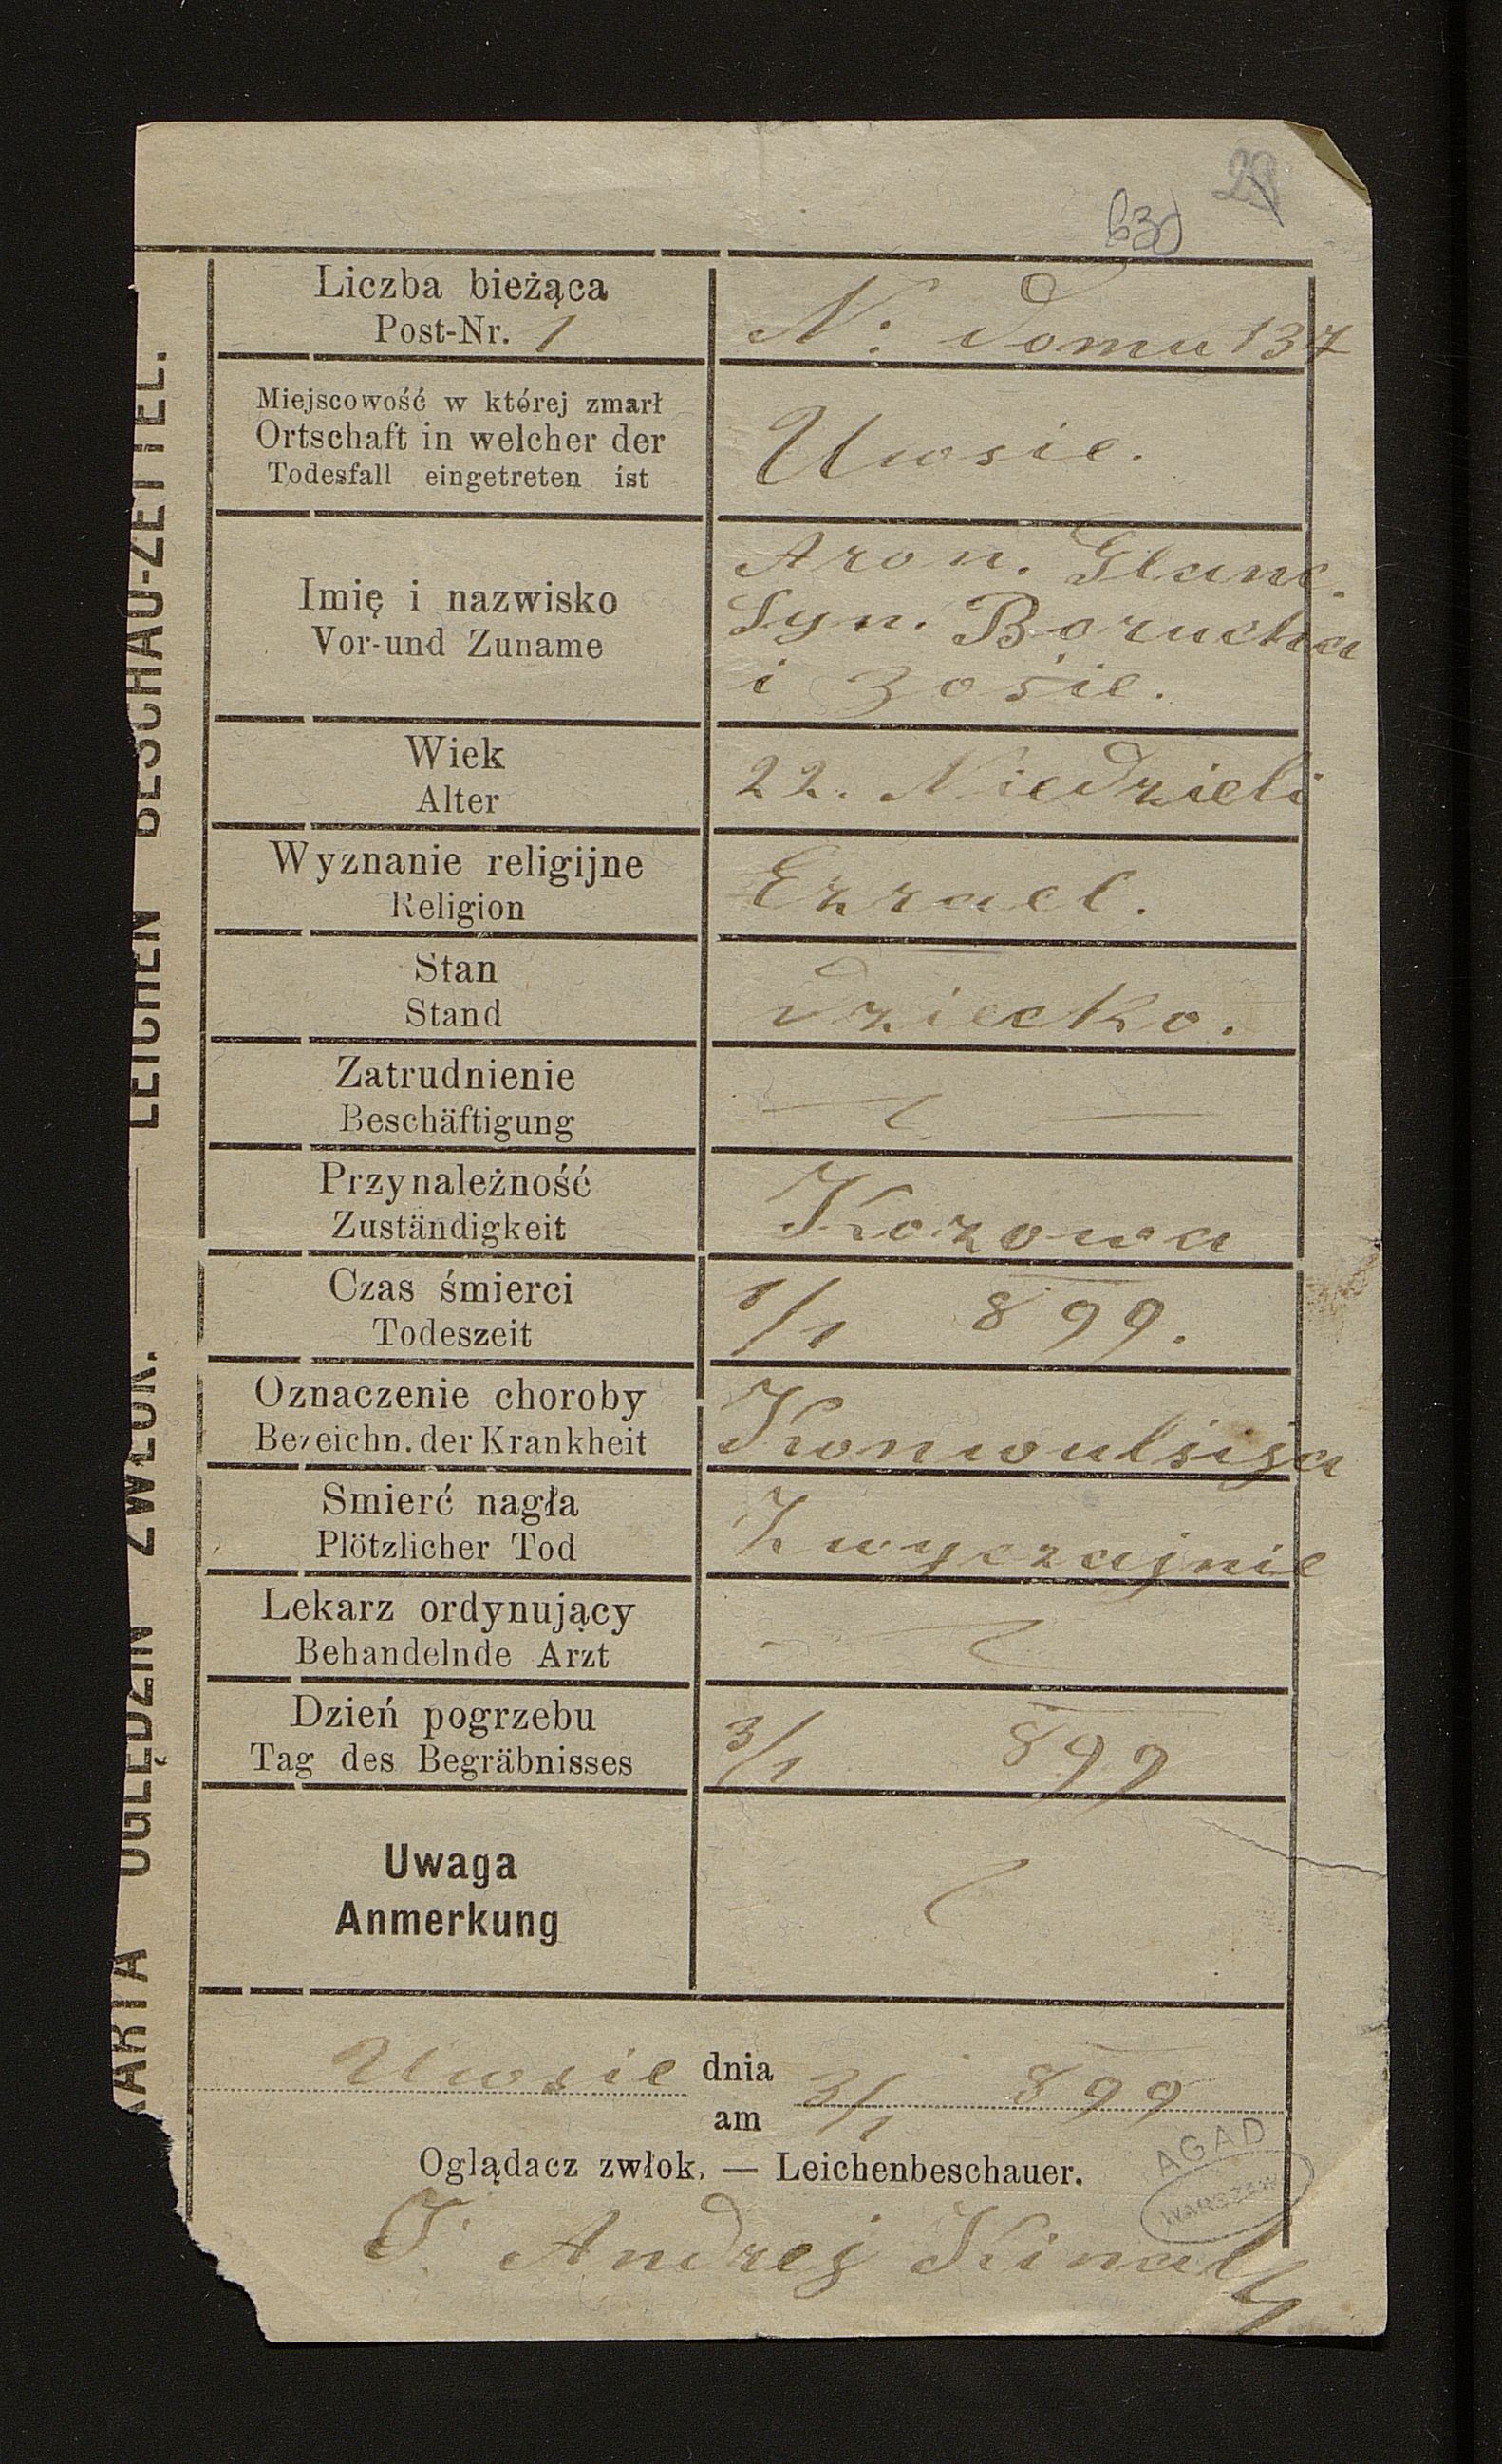 29
630
Liczba bieżąca
Post-Nr. 1
N: domu 137
Miejscowość w której zmarł
Ortschaft in welcher der
Todesfall eingetreten ist
Uwsie.
Imię i nazwisko
Vor-und Zuname
Aron. Glanc.
Syn. Borucha
i Zosie.
Wiek
Alter
22. Niedzieli
Wyznanie religijne
Religion
Ezrael.
Stan
Stand
dziecko.
Zatrudnienie
Beschäftigung
Przynależność
Zuständigkeit
Kozowa
Czas śmierci
Todeszeit
1/1 899.
Oznaczenie choroby
Bezeichn. der Krankheit
Konwulsija
Smierć nagła
Plötzlicher Tod
Zwyczajnie
Lekarz ordynujący
Behandelnde Arzt
Dzień pogrzebu
Tag des Begräbnisses
3/1 899
Uwaga
Anmerkung
Uwsie dnia 3/1 899
am
Oglądacz zwłok. — Leichenbeschauer.
Andrej Kinal
AGAD
WARSZAWA
KARTA OGLĘDZIN ZWŁOK. — LEICHEN BESCHAU-ZETTEL.